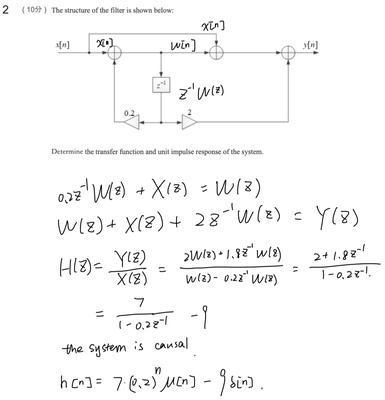 2 （10分） The structure of the filter is shown below:
x[n]
x[n] x[n] w[n] y[n]
z⁻¹
z⁻¹W(z)
0.2 2
Determine the transfer function and unit impulse response of the system.
0.2z⁻¹W(z) + X(z) = W(z)
W(z) + X(z) + 2z⁻¹W(z) = Y(z)
H(z) = Y(z)/X(z) = (2W(z)+1.8z⁻¹W(z))/(W(z)-0.2z⁻¹W(z)) = (2+1.8z⁻¹)/(1-0.2z⁻¹).
= 7/(1-0.2z⁻¹) -9
the system is causal.
h[n] = 7·(0.2)ⁿ μ[n] - 9δ[n].